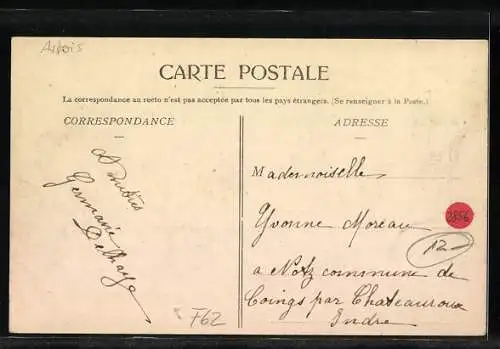 Artois
CARTE POSTALE
La correspondance au recto n'est pas acceptée par tous les pays étrangers. (Se renseigner à la Poste.)
CORRESPONDANCE
ADRESSE
Amitiés
Germaine
Delhaye
Mademoiselle
Yvonne Moreau
a Notz commune de
Coings par Chateauroux
Indre
3856
12-
F62